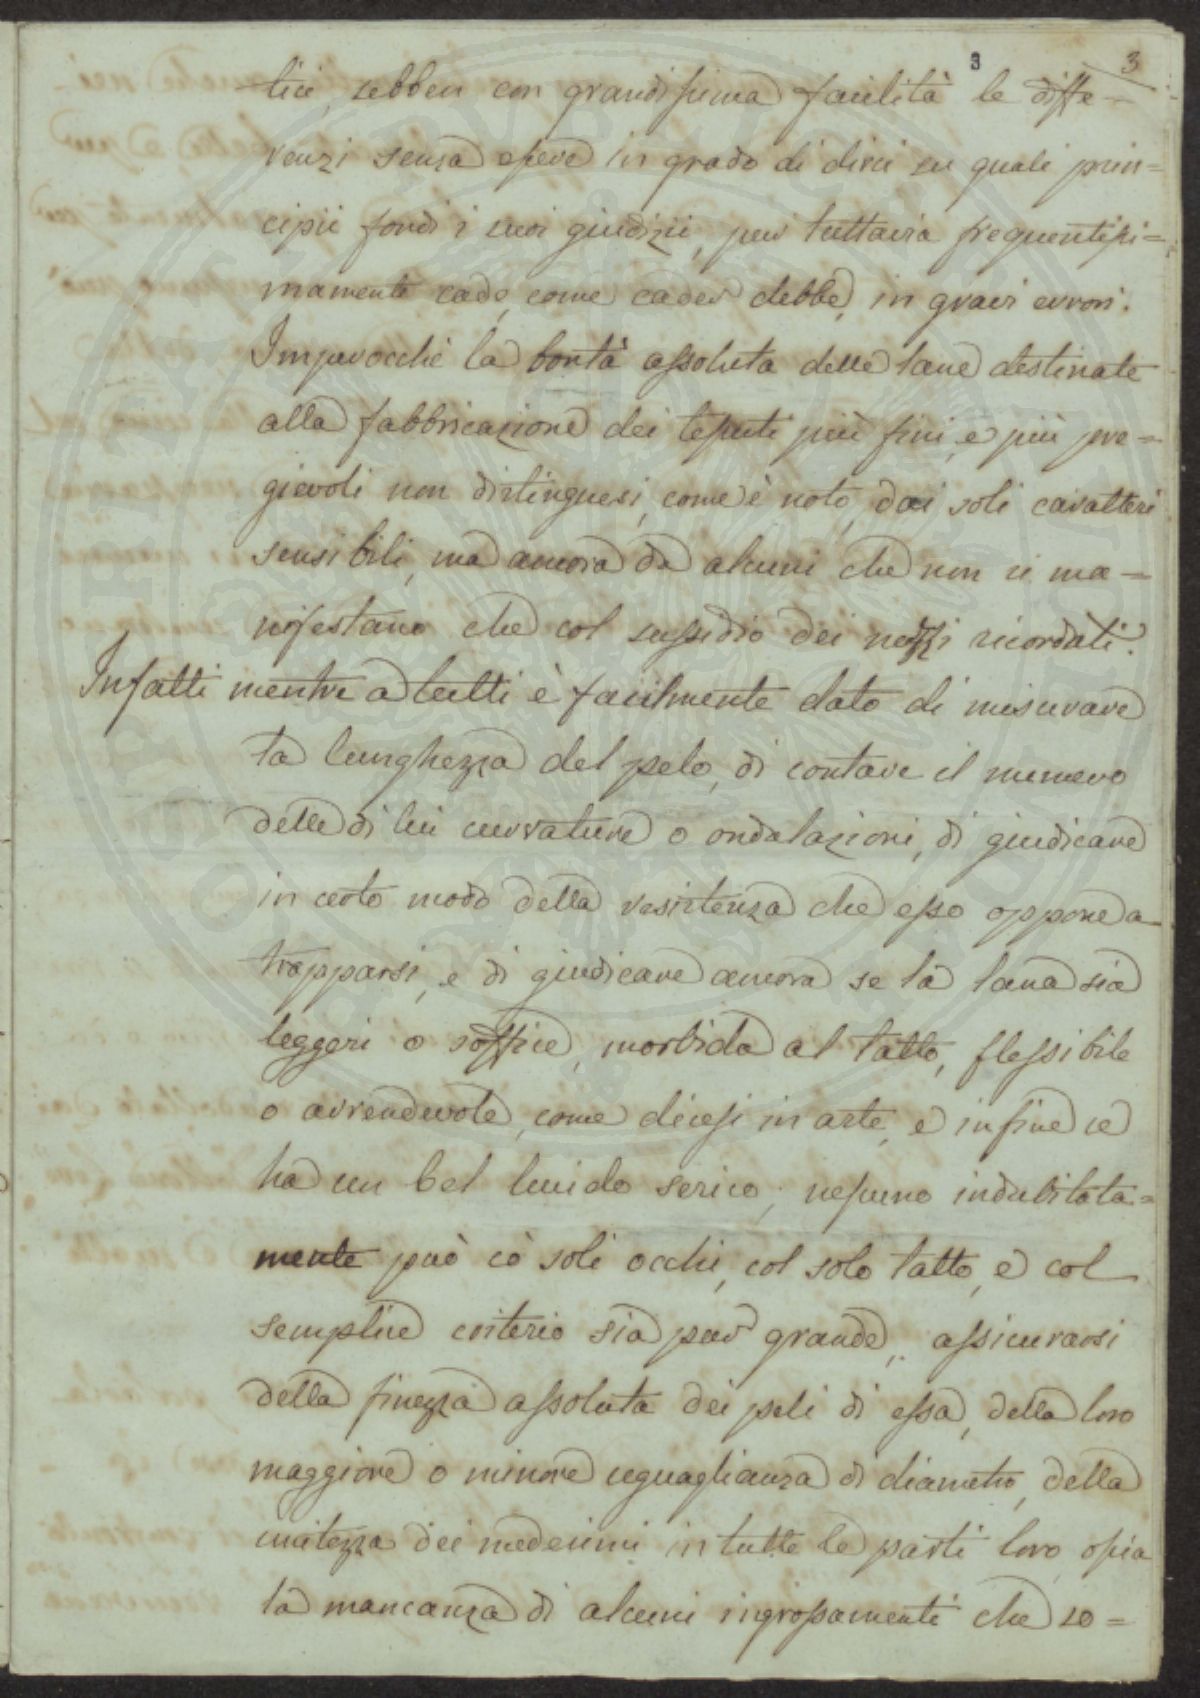 3 3
tici, sebben con grandissima facilità le diffe=
renzi senza essere in grado di dirci su quali prin=
cipii fondi i suoi giudizii, pur tuttavia frequentissi=
mamente cade, come cader debbe, in gravi errori.
Imperocchè la bontà assoluta delle lane destinate
alla fabbricazione dei tessuti più fini, e più pre=
gievoli non distinguesi, come è noto, dai soli caratteri
sensibili, ma ancora da alcuni che non si ma=
nifestano che col sussidio dei mezzi ricordati.
Infatti mentre a tutti è facilmente dato di misurare
la lunghezza del pelo, di contare il numero
delle di lui curvature o ondulazioni, di giudicare
in certo modo della resistenza che esso oppone a
strapparsi, e di giudicare ancora se la lana sia
leggeri o soffice, morbida al tatto, flessibile
o arrendevole, come dicesi in arte, e infine se
ha un bel lucido serico; nessuno indubitata=
mente può cò soli occhi, col solo tatto, e col
semplice criterio sia pur grande, assicurarsi
della finezza assoluta dei peli di essa, della loro
maggiore o minore uguaglianza di diametro, della
unitezza dei medesimi in tutte le parti loro, ossia
la mancanza di alcuni ingrossamenti che so=